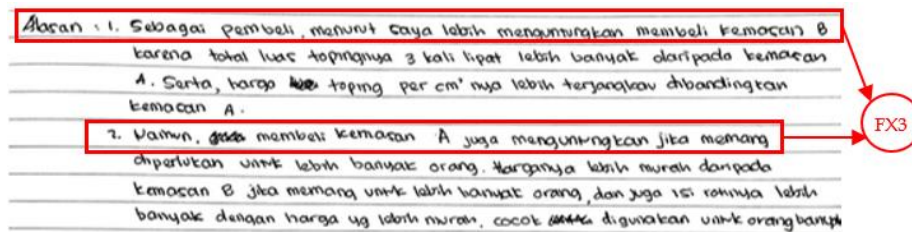 Alasan : 1. Sebagai pembeli, menurut saya lebih menguntungkan membeli kemasan B
karena total luas topingnya 3 kali lipat lebih banyak daripada kemasan
A. Serta, harga toping per cm² nya lebih terjangkau dibandingkan
kemasan A.
2. Namun, membeli kemasan A juga menguntungkan jika memang
diperlukan untuk lebih banyak orang. Harganya lebih murah daripada
kemasan B jika memang untuk lebih banyak orang, dan juga isi rotinya lebih
banyak dengan harga yg lebih murah, cocok digunakan untuk orang banyak
FX3